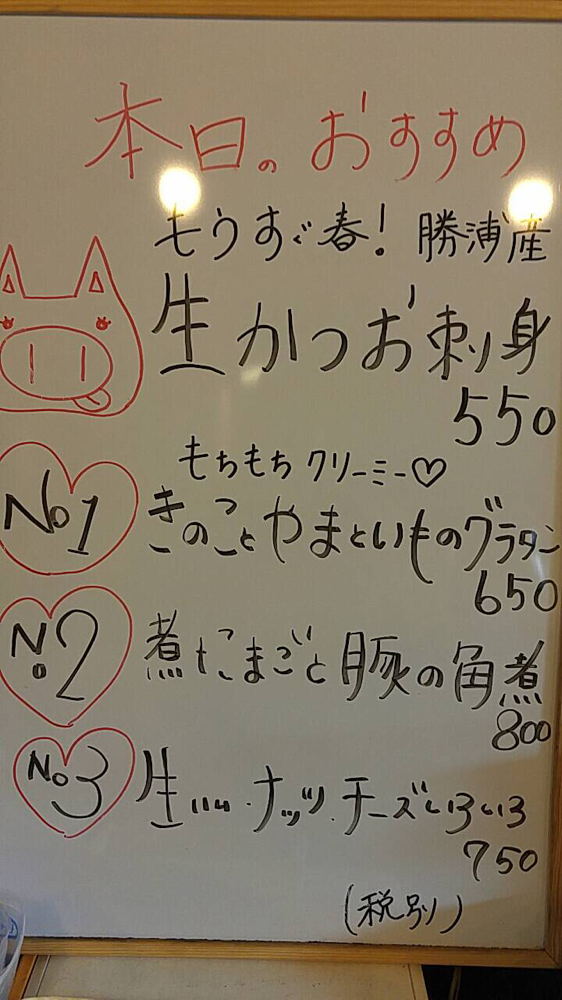 本日のおすすめ
もうすぐ春! 勝浦産
生かつお刺身
550
もちもちクリーミー♡
No1 きのことやまといものグラタン
650
No2 煮たまごと豚の角煮
800
No3 生ハム・ナッツ・チーズいろいろ
750
(税別)